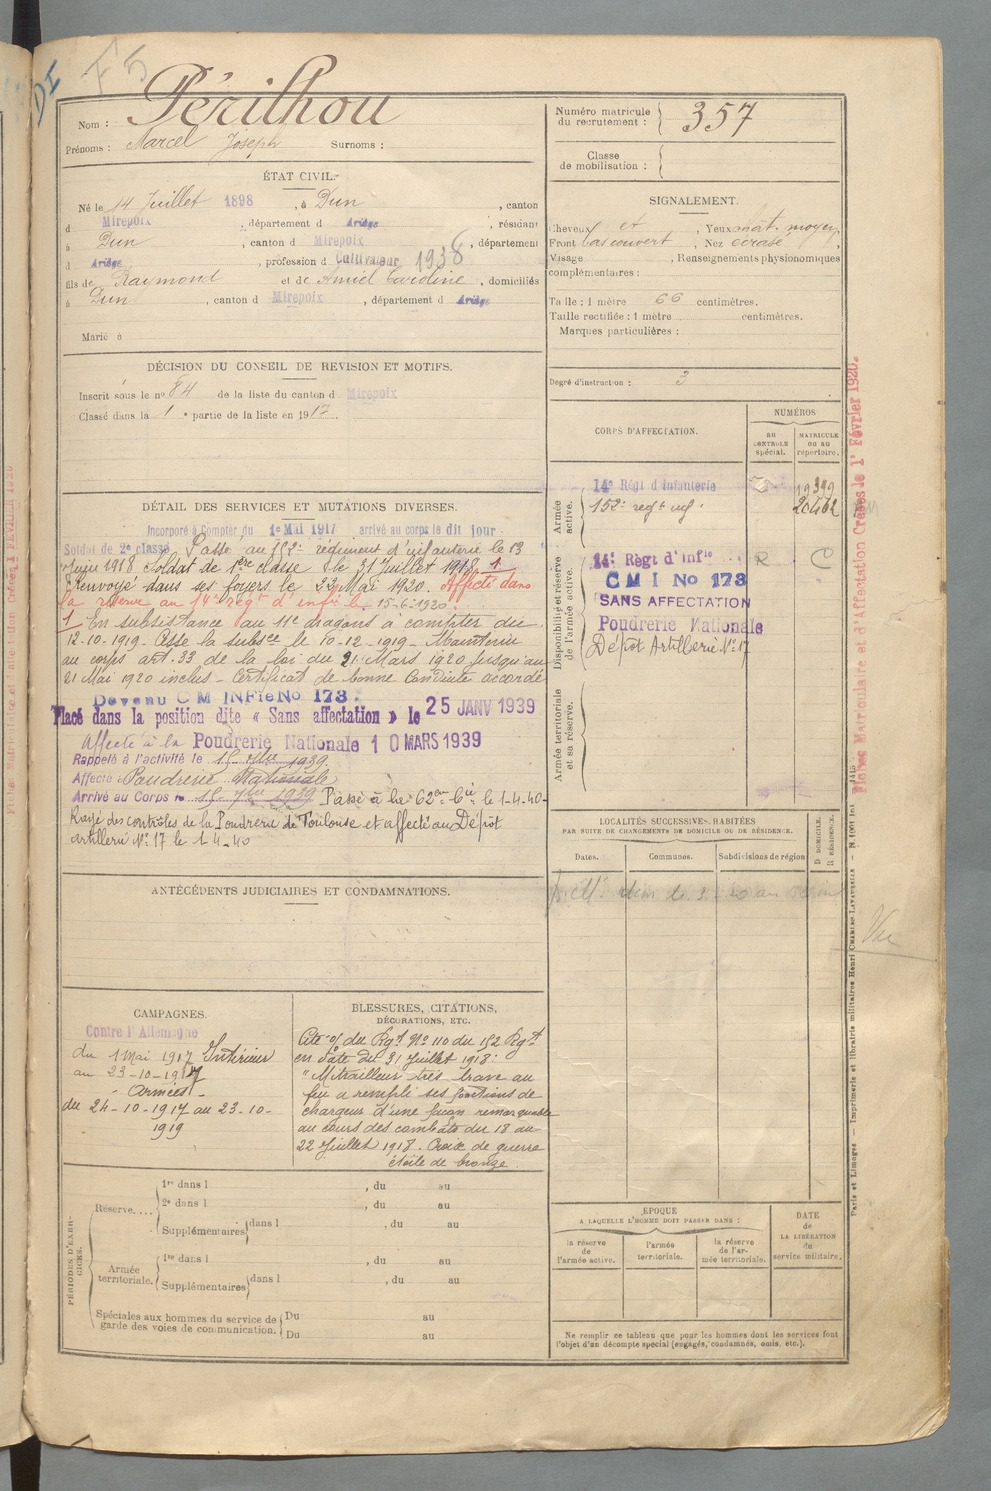 DE
F5
Nom : Périlhou
Prénoms : Marcel Joseph Surnoms :
Numéro matricule du recrutement : 357
Classe de mobilisation :
ÉTAT CIVIL.
Né le 14 Juillet 1898, à Dun, canton
d Mirepoix, département d Ariège, résidant
à Dun, canton d Mirepoix, département
d Ariège, profession d Cultivateur 1938
fils de Raymond et de Amiel Caroline, domiciliés
à Dun, canton d Mirepoix, département d Ariège
Marié à
SIGNALEMENT.
Cheveux et, Yeux chât. moyen,
Front bas couvert, Nez écrasé,
Visage, Renseignements physionomiques
complémentaires :
Taille : 1 mètre 66 centimètres.
Taille rectifiée : 1 mètre centimètres.
Marques particulières :
Degré d'instruction : 3
DÉCISION DU CONSEIL DE REVISION ET MOTIFS.
Inscrit sous le n° 84 de la liste du canton d Mirepoix
Classé dans la 1e partie de la liste en 1917.
CORPS D'AFFECTATION.
NUMÉROS
AU CONTROLE spécial.
MATRICULE OU AU répertoire.
Armée active.
14e Régt d'Infanterie 19399
152e regt inf. 20462
Disponibilité et réserve de l'armée active.
14e Régt d'Infie R C
C M I No 173
SANS AFFECTATION
Poudrerie Nationale
Dépôt Artillerie N° 17
Armée territoriale et sa réserve.
DÉTAIL DES SERVICES ET MUTATIONS DIVERSES.
Incorporé à Compter du 1e Mai 1917 arrivé au corps le dit jour
Soldat de 2e classe Passé au 152e régiment d'infanterie le 13
Juin 1918 Soldat de 1ère classe le 31 Juillet 1918. 1
Renvoyé dans ses foyers le 22 Mai 1920. Affecté dans
la réserve au 14e régt d'infie le 15-6-1920.
1 En subsistance au 11e dragons à compter du
12-10-1919. Cesse la subsce le 10-12-1919 - Maintenu
au corps art. 33 de la loi du 21 Mars 1920 jusqu'au
21 Mai 1920 inclus - Certificat de bonne Conduite accordé
Devenu C M INFie No 173.
Placé dans la position dite « Sans affectation » le 25 JANV 1939
Affecté à la Poudrerie Nationale 10 MARS 1939
Rappelé à l'activité le 15 7bre 1939.
Affecté Poudrerie Nationale
Arrivé au Corps le 15 7bre 1939 Passé à la 62em Bie le 1-4-40-
Rayé des contrôles de la Poudrerie de Toulouse et affecté au Dépôt
artillerie N° 17 le 1-4-40
ANTÉCÉDENTS JUDICIAIRES ET CONDAMNATIONS.
LOCALITÉS SUCCESSIVES HABITÉES
PAR SUITE DE CHANGEMENTS DE DOMICILE OU DE RÉSIDENCE.
Dates. Communes. Subdivisions de région
D DOMICILE. R RÉSIDENCE.
Vu
CAMPAGNES.
Contre l'Allemagne
du 1 Mai 1917 Intérieur
au 23-10-1917
- Armées -
du 24-10-1917 au 23-10-
1919
BLESSURES, CITATIONS,
DÉCORATIONS, ETC.
Cité o/ du Rgt N° 110 du 152 Rgt
en date du 31 Juillet 1918 :
"Mitrailleur très brave au
feu a rempli ses fonctions de
chargeur d'une façon remarquable
au cours des combats du 18 au
22 Juillet 1918. Croix de guerre
étoile de bronze.
PÉRIODES D'EXERCICES.
Réserve....
1re dans l, du au
2e dans l, du au
Supplémentaires dans l, du au
Armée territoriale.
1re dans l, du au
Supplémentaires dans l, du au
Spéciales aux hommes du service de garde des voies de communication.
Du au
Du au
ÉPOQUE
A LAQUELLE L'HOMME DOIT PASSER DANS :
la réserve de l'armée active.
l'armée territoriale.
la réserve de l'armée territoriale.
DATE de LA LIBÉRATION du service militaire.
Ne remplir ce tableau que pour les hommes dont les services font
l'objet d'un décompte spécial (engagés, condamnés, omis, etc.).
Fiches Matriculaire et d'Affectation Créées le 1r Février 1920.
Paris et Limoges. — Imprimerie et librairie militaires Henri CHARLES-LAVAUZELLE